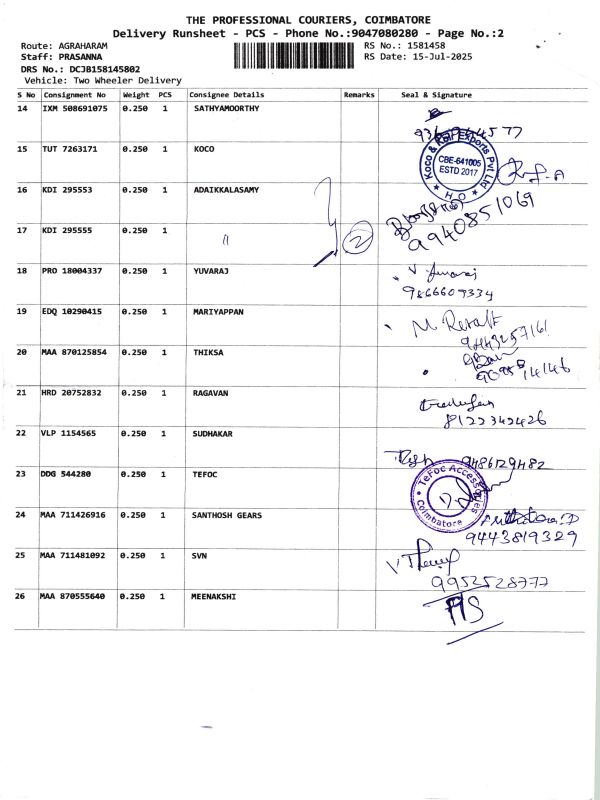 THE PROFESSIONAL COURIERS, COIMBATORE
Delivery Runsheet - PCS - Phone No.:9047080280 - Page No.:2
Route: AGRAHARAM RS No.: 1581458
Staff: PRASANNA RS Date: 15-Jul-2025
DRS No.: DCJB158145802
Vehicle: Two Wheeler Delivery
S No Consignment No Weight PCS Consignee Details Remarks Seal & Signature
14 IXM 508691075 0.250 1 SATHYAMOORTHY
15 TUT 7263171 0.250 1 KOCO
Koco & Rai Exports Pvt Ltd
CBE-641005
ESTD 2017
H O
16 KDI 295553 0.250 1 ADAIKKALASAMY
9940851069
17 KDI 295555 0.250 1 〃 2
18 PRO 18004337 0.250 1 YUVARAJ
9866609334
19 EDQ 10290415 0.250 1 MARIYAPPAN
9443257161
20 MAA 870125854 0.250 1 THIKSA
21 HRD 20752832 0.250 1 RAGAVAN
8122342426
22 VLP 1154565 0.250 1 SUDHAKAR
9486129482
23 DDG 544280 0.250 1 TEFOC
TeFoc Accessories
Coimbatore
24 MAA 711426916 0.250 1 SANTHOSH GEARS
9443819329
25 MAA 711481092 0.250 1 SVN
9952528777
26 MAA 870555640 0.250 1 MEENAKSHI